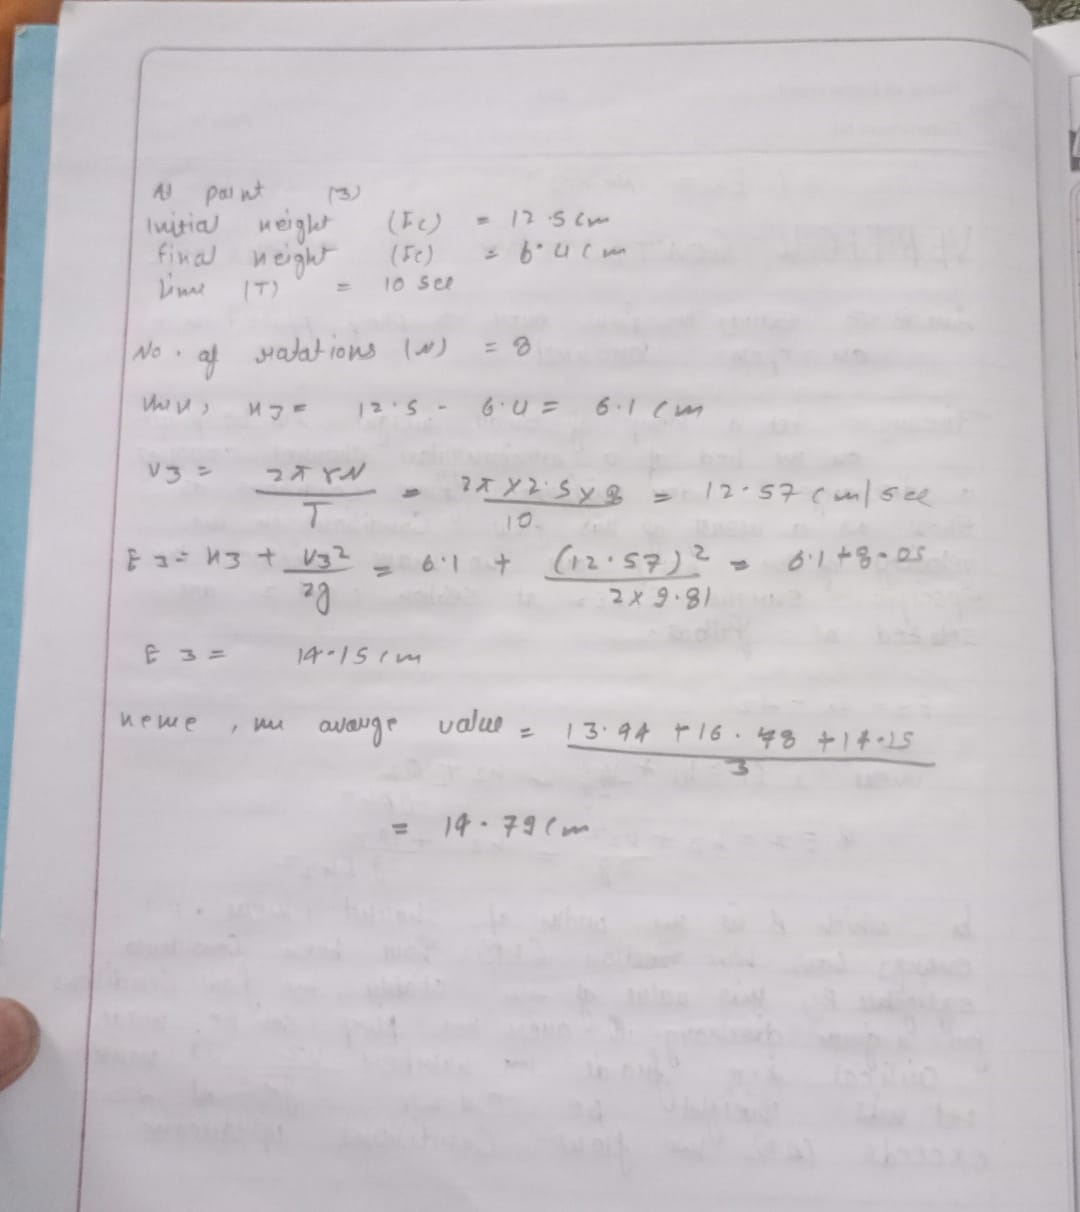 At point (3)
Initial height (Ic) = 12.5 cm
final height (Fc) = 6.4 cm
time (T) = 10 sec
No. of rotations (N) = 8
then, H3 = 12.5 - 6.4 = 6.1 cm
V3 = 2πrN / T = 2π×2.5×8 / 10 = 12.57 cm/sec
E3 = H3 + V3² / 2g = 6.1 + (12.57)² / 2×9.81 = 6.1 + 8.05
E3 = 14.15 cm
hence, the avarge value = 13.94 + 16.48 + 14.15 / 3
= 14.79 cm